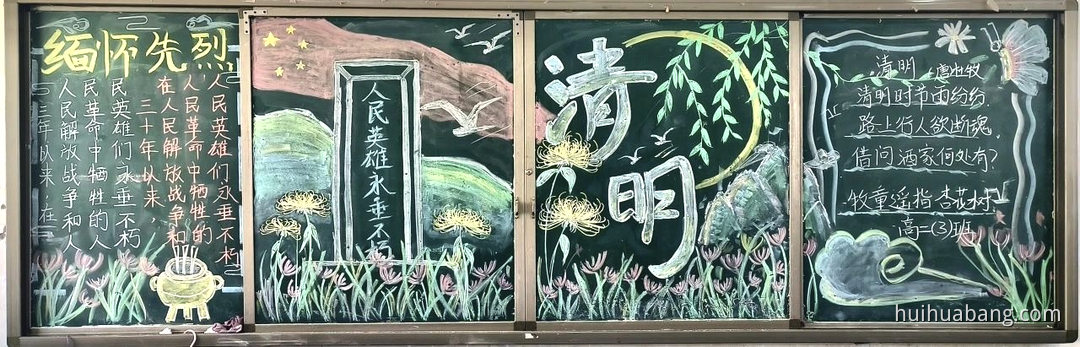 缅怀先烈
三年以来,在
人民解放战争和人
民革命中牺牲的人
民英雄们永垂不朽
三十年以来
在人民解放战争和
人民革命中牺牲的
人民英雄们永垂不朽
人民英雄永垂不朽
清明
清明 唐杜牧
清明时节雨纷纷,
路上行人欲断魂。
借问酒家何处有?
牧童遥指杏花村
高二(3)班
huihuabang.com